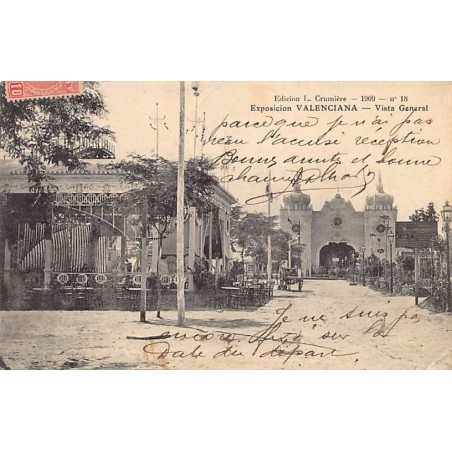 10
Edicion L. Crumière — 1909 — n° 18
Exposicion VALENCIANA — Vista General
parceque je n'ai pas
reçu l'accusé réception
Bonne année et donne
Je ne suis pas
encore fixé sur la
Date du départ